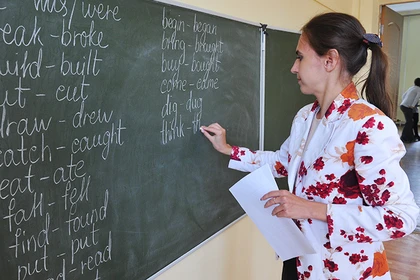 was/were
break - broke
build - built
put - cut
draw - drew
catch - caught
eat - ate
fall - fell
find - found
put - put
read
begin - began
bring - brought
buy - bought
come - came
dig - dug
think - th